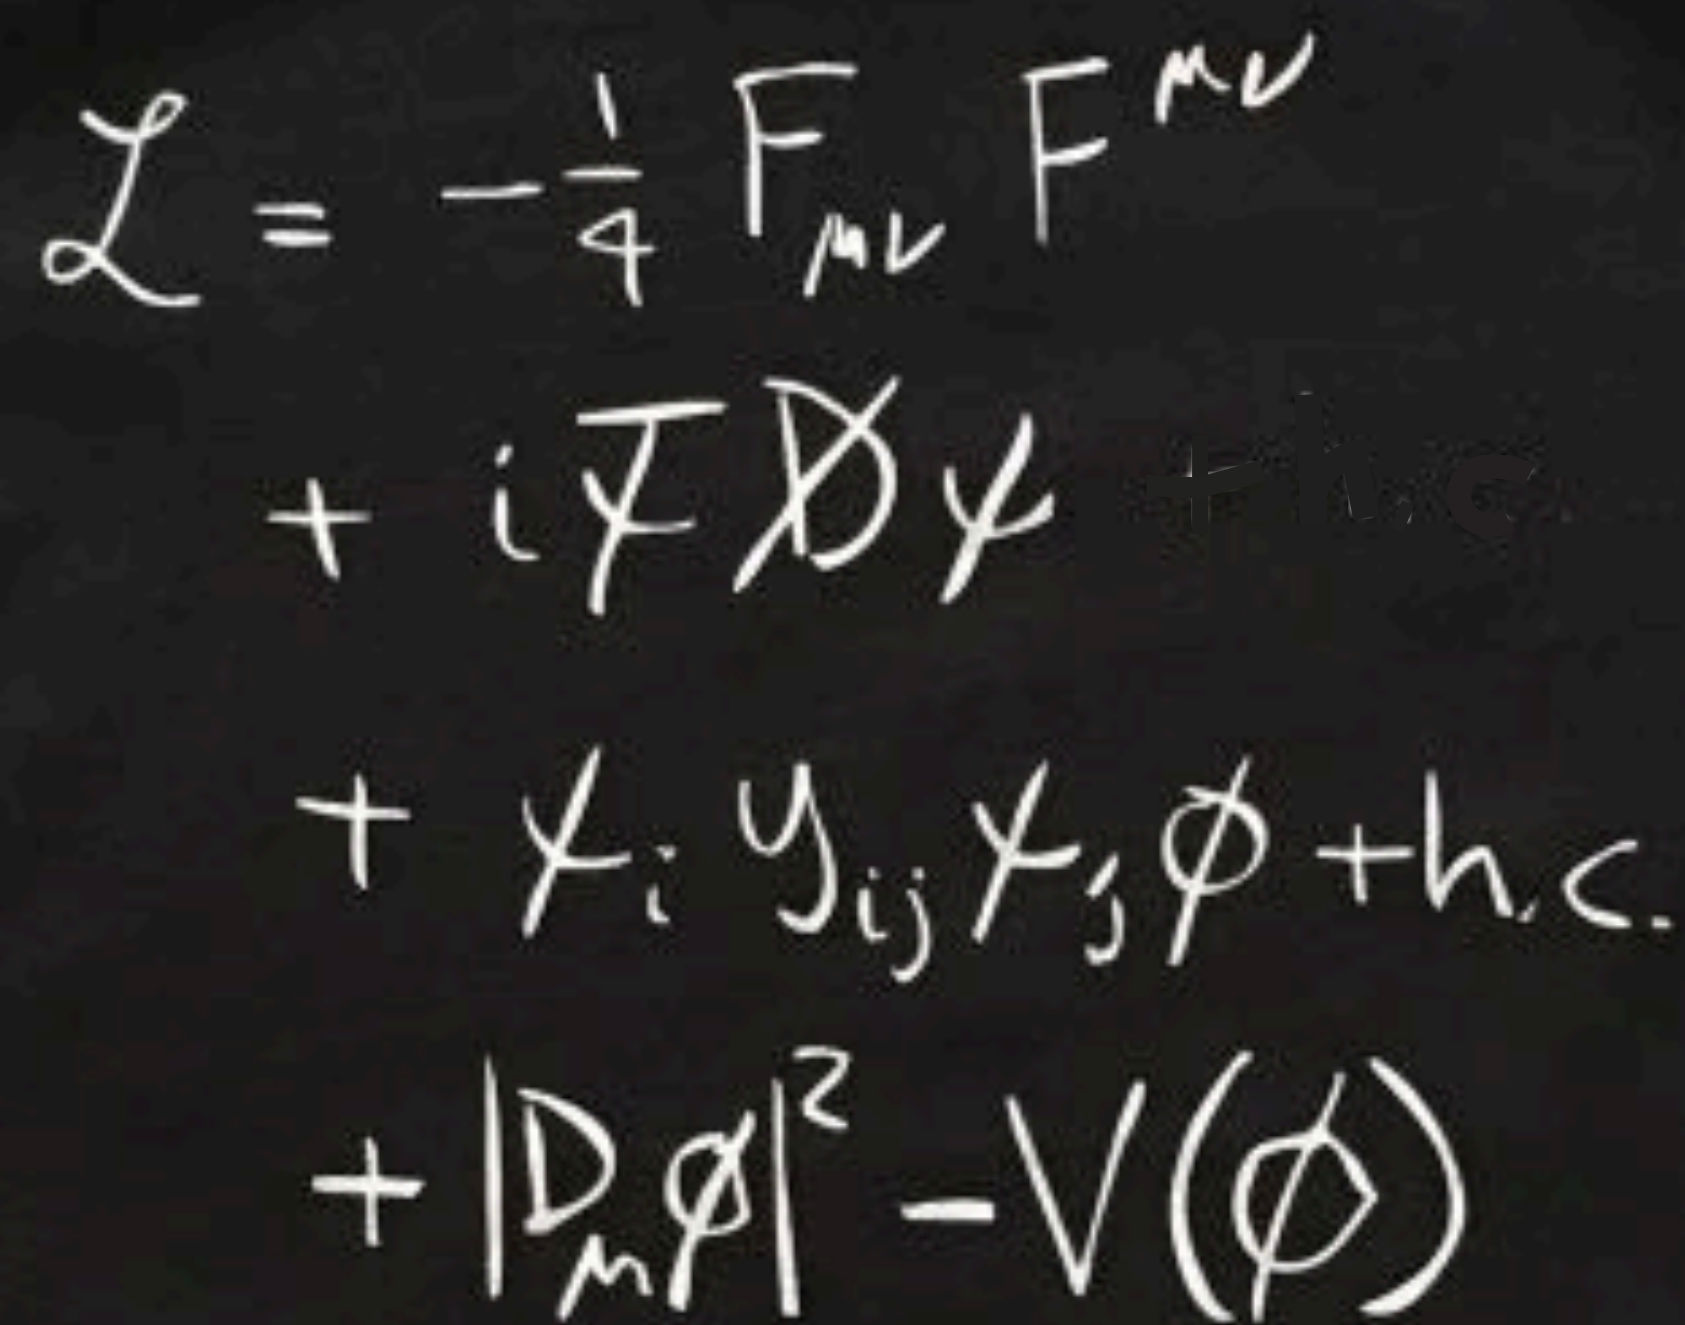 ℒ = -1/4 F_μν F^μν
+ i ψ̄ D̸ ψ
+ ψ_i y_ij ψ_j φ + h.c.
+ |D_μ φ|² - V(φ)